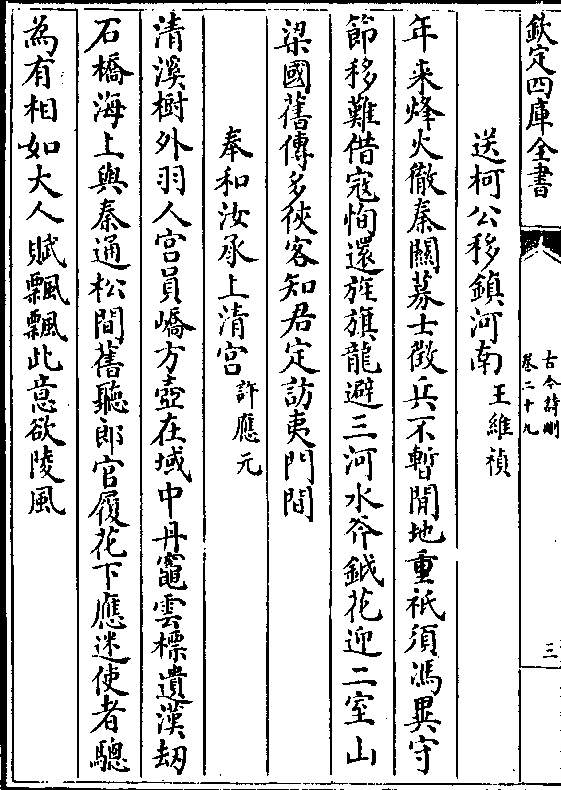 欽定四庫全書
古今詩刪
卷二十九
三
送柯公移鎮河南王維禎
年来烽火徹秦關募士徵兵不暫閒地重祇須馮異守
節移難借寇恂還旌旗龍避三河水斧鉞花迎二室山
梁國舊傳多俠客知君定訪夷門間
奉和汝承上清宮許應元
清溪樹外羽人宮員嶠方壺在域中丹竈雲標遺漢劫
石橋海上與秦通松間舊聽郎官履花下應迷使者驄
為有相如大人賦飄飄此意欲陵風